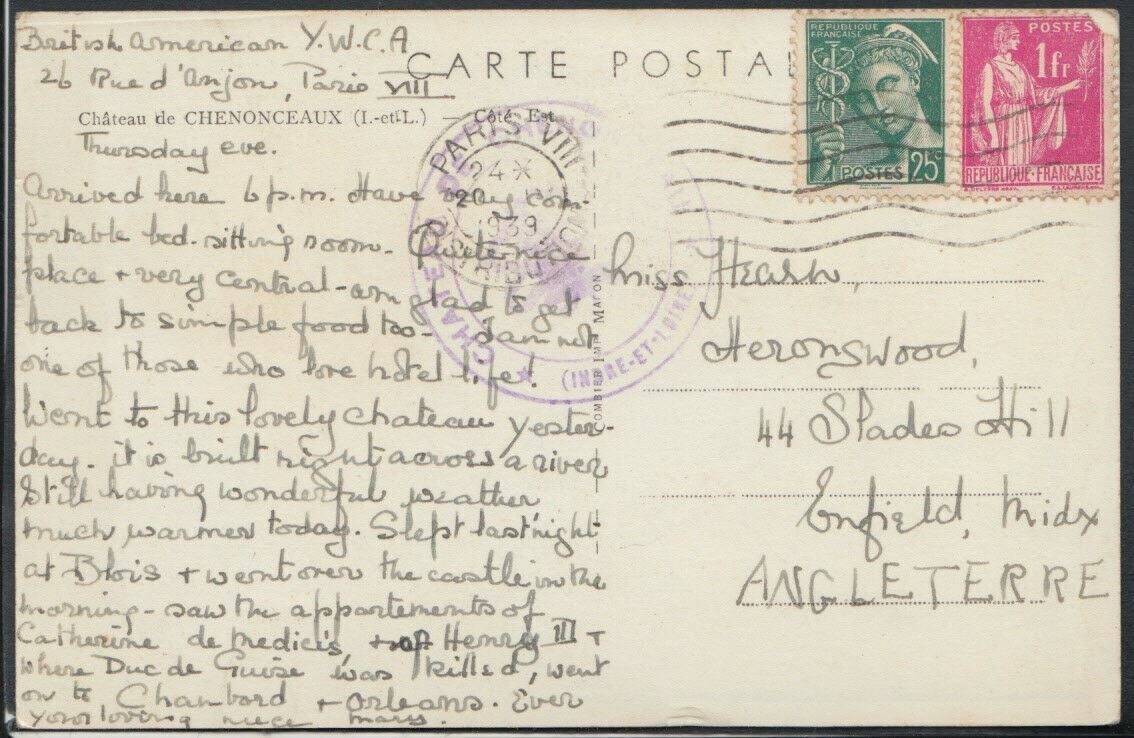 British American Y.W.C.A
26 Rue d'Anjou, Paris VIII
CARTE POSTAL
Château de CHENONCEAUX (I.-et-L.) — Côté Est
Thursday eve.
Arrived here 6 p.m. Have very com-
fortable bed-sitting room. Quite nice
place + very central - am glad to get
back to simple food too - I am not
one of those who love hotel life!
Went to this lovely chateau yester-
day. it is built right across a river
Still having wonderful weather
much warmer today. Slept last night
at Blois + went over the castle in the
morning - saw the appartements of
Catherine de Medicis, + of Henry III +
where Duc de Guise was killed, went
on to Chambord + Orleans. Ever
your loving niece Mary.
REPUBLIQUE FRANÇAISE
POSTES 25c
POSTES
1fr
REPUBLIQUE·FRANÇAISE
PARIS VIII
24 X
1939
DISTRIBUTION
(INDRE-ET-LOIRE)
COMBIER IMP. MACON
Miss Hearn,
Heronswood,
44 Slades Hill
Enfield, Midx
ANGLETERRE